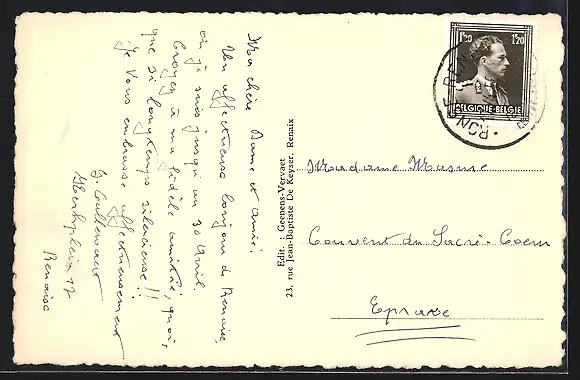 Ma chère Dame et amie:
Un affectueux bonjour de Renaix,
où je suis jusqu'au 30 avril.
Croyez à ma fidèle amitié, quoi-
que si longtemps silencieuse!!
Je vous embrasse affectueusement
17
Renaix
Edit. : Geenens-Vervaet
23, rue Jean-Baptiste De Keyser, Renaix
1F20 1F20
BELGIQUE-BELGIE
Madame
Couvent du Sacré-Coeur